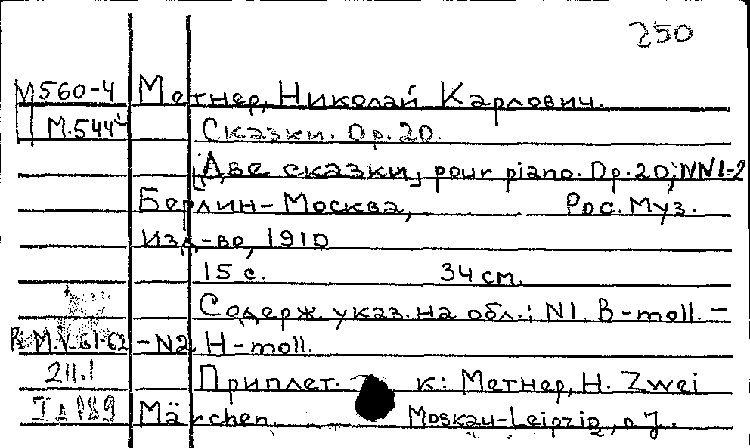 250
М560-4 Метнер, Николай Карлович.
М.544 Сказки. Op. 20.
[Две сказки] pour piano. Op. 20, NN1-2
Берлин-Москва, Рос. Муз.
Изд-во, 1910
15 с. 34 см.
Содерж. указ. на обл.: N1. B-moll. –
– N2. H-moll.
211.1 Приплет. к: Метнер, Н. Zwei
Märchen. Moskau-Leipzig, o J.